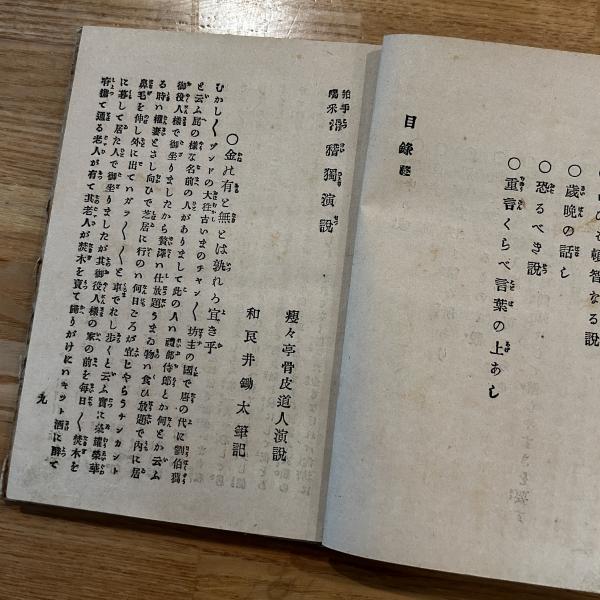 ○頓智なる説
○歳晩の話し
○恐るべき説
○重言くらべ言葉の上あし
目録終
拍手喝采滑稽獨演説
痩々亭骨皮道人演説
和良井鋤太筆記
○金は有と無とは孰れが宜き乎
むかし〳〵グンドの大往古いまのチヤン〳〵坊主の國で唐の代に劉伯獨
と云ふ屁の様な名前の人がありまして此の人ハ禮部侍郎とか何とか云ふ
御役人様で御坐りましたから贅澤ハ仕放題うまゐ物ハ食ひ放題で内に居
る時ハ權妻とさし向ひで芝居に行のハ何日ごろが宜じやらうナンカント
鼻毛を伸し外に出ていガラ〳〵〳〵と車でおし歩くと云ふ實に榮耀榮華
に暮して居た人で御坐りましたが其御役人様の家の前を毎日〳〵焚木を
脊擔て通る老人が有て其老人が焚木を賣て歸りがけにハキツト酒に醉て
九